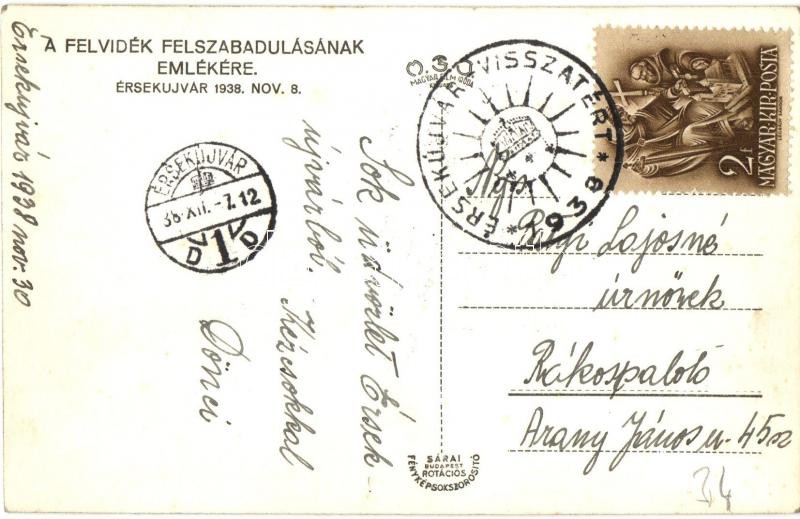 A FELVIDÉK FELSZABADULÁSÁNAK
EMLÉKÉRE.
ÉRSEKUJVÁR 1938. NOV. 8.
Érsekujvár 1938 nov. 30
ÉRSEKÚJVÁR
38.XII.-7.12
D 1 D
O.S.O
MAGYAR FILM IRODA
ÉRSEKÚJVÁR VISSZATÉRT
* 1938 *
2f
MAGYAR·KIR·POSTA
Sok üdvözlet Érsek
újvárból. Kézcsókkal
Dönci
Lajosné
úrnőnek
Rákospalotó
Arany János u. 45 sz
SÁRAI
BUDAPEST
ROTÁCIÓS
FÉNYKÉPSOKSZOROSITÓ
34